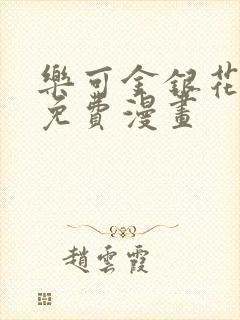 樂可金銀花
免費漫畫
趙雲霞